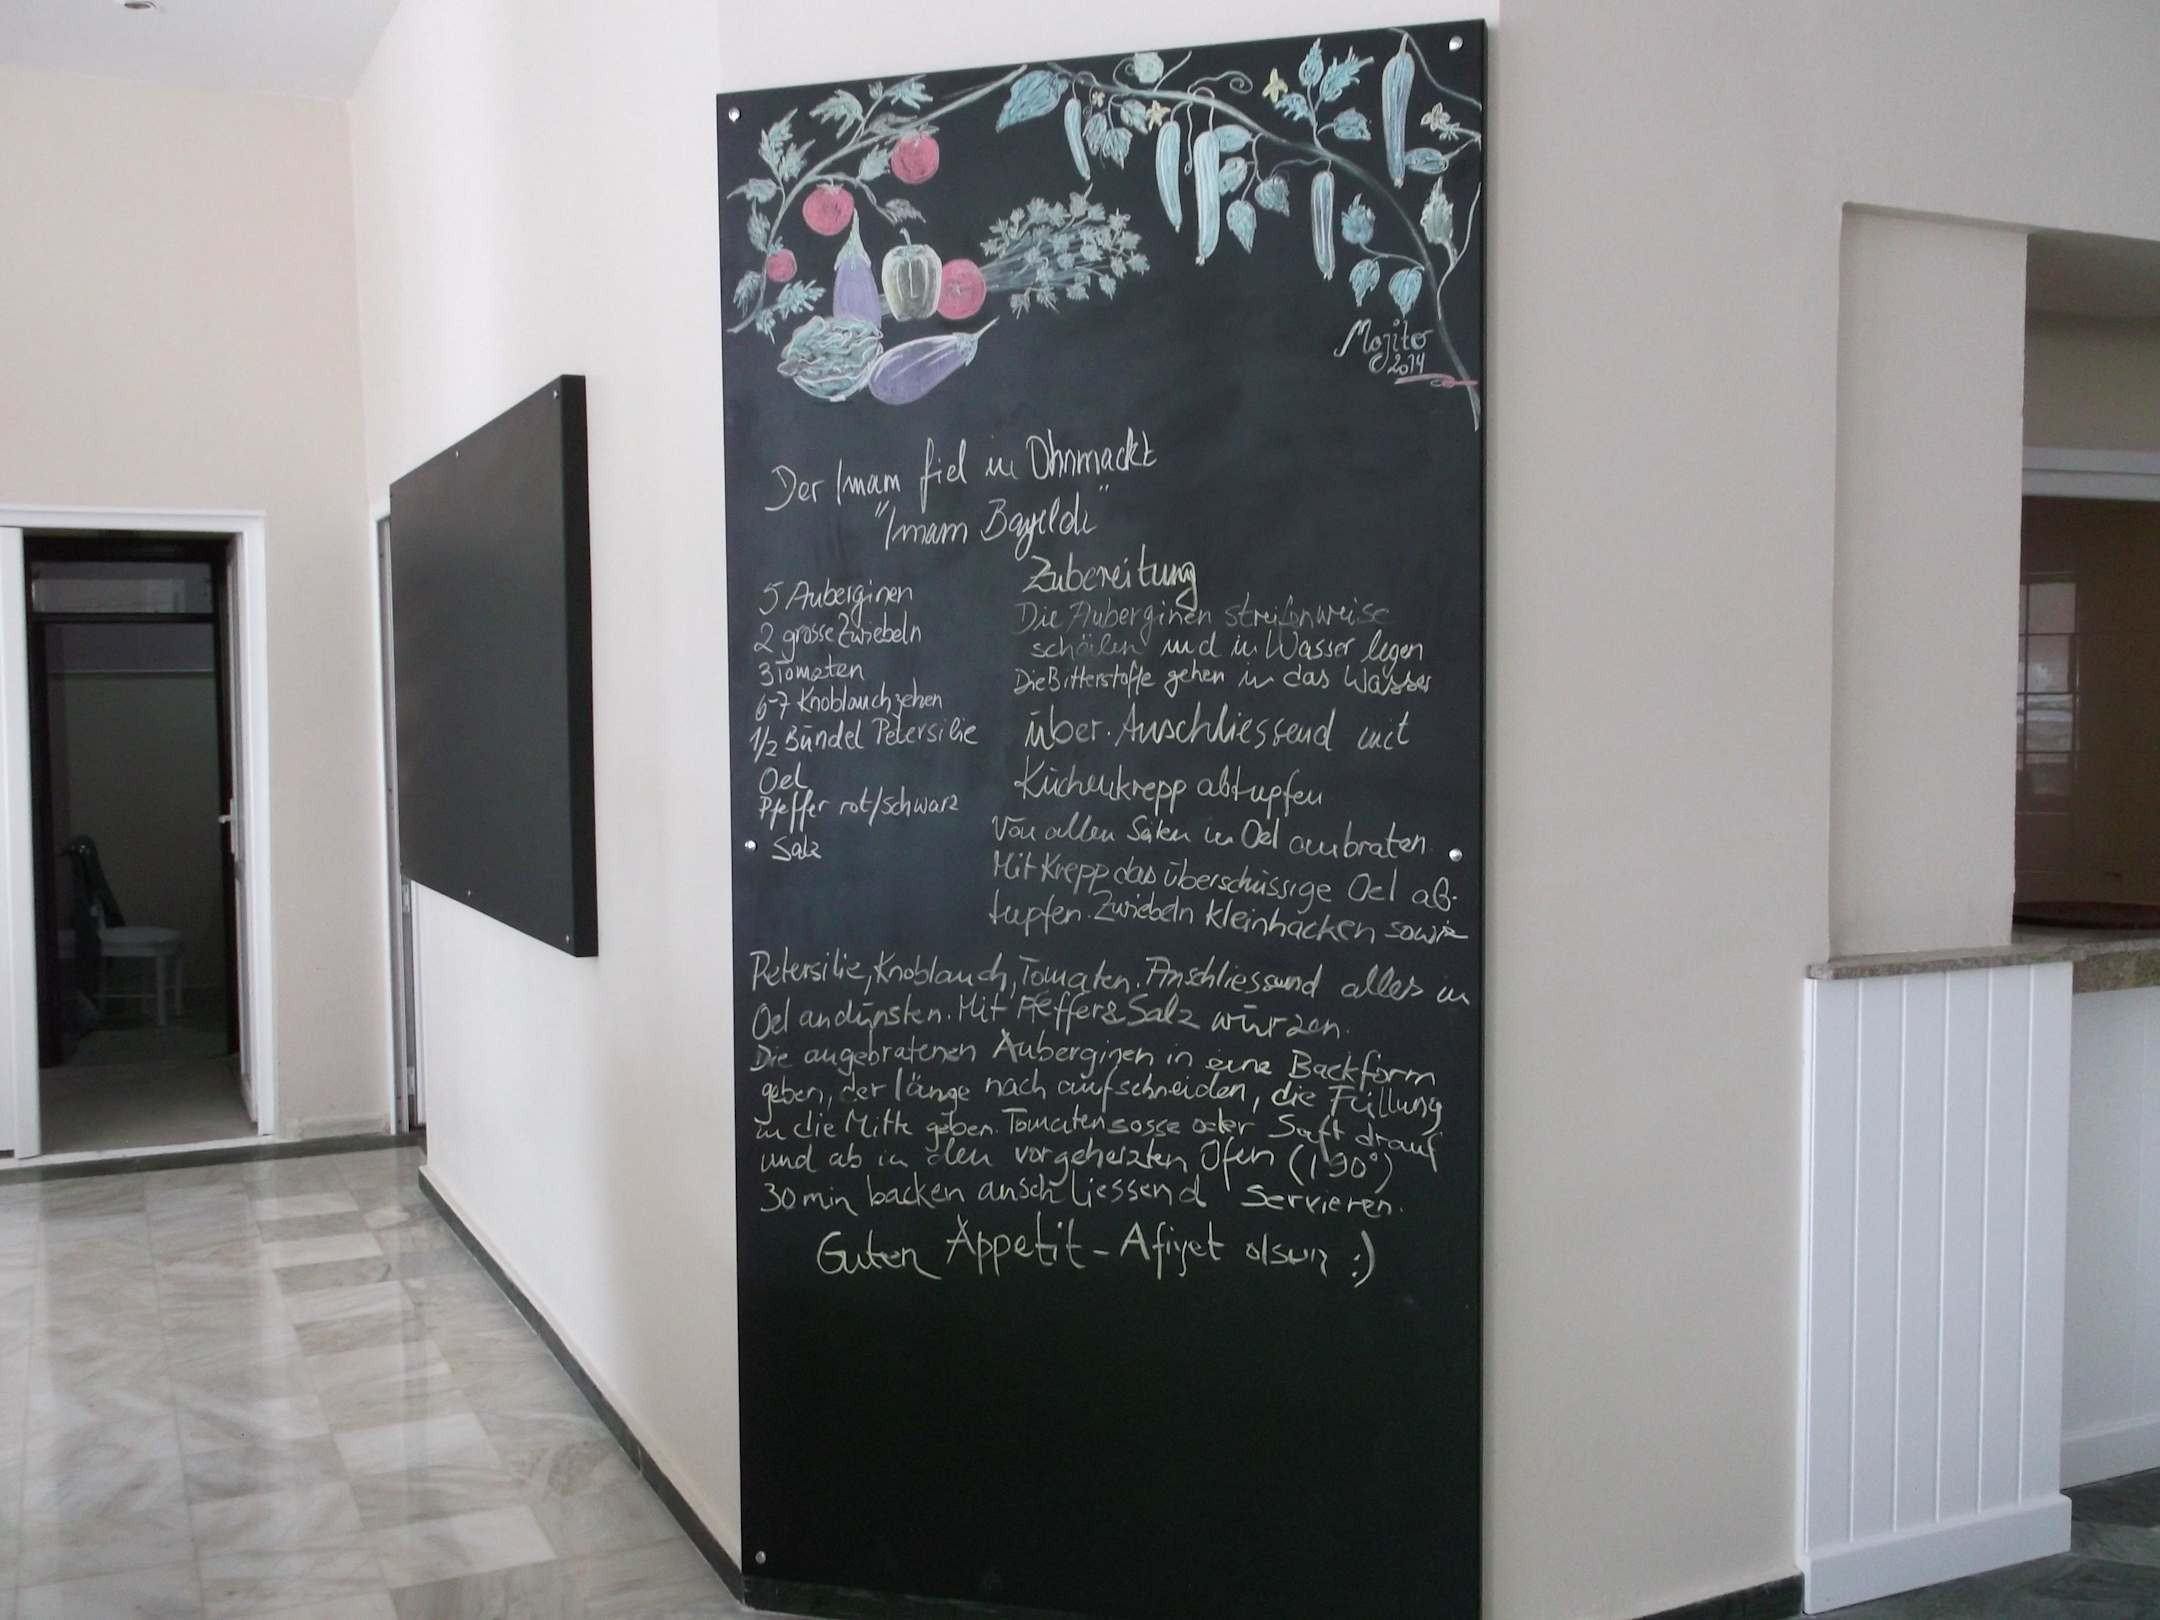 Mojito
©2014
Der Imam fiel in Ohnmackt
"Imam Bayildi"
5 Auberginen
2 grosse Zwiebeln
3 Tomaten
6-7 Knoblauchzehen
1/2 Bündel Petersilie
Oel
Pfeffer rot/schwarz
Salz
Zubereitung
Die Auberginen streifenweise
schälen und in Wasser legen
Die Bitterstoffe gehen in das Wasser
über. Anschliessend mit
Küchenkrepp abtupfen
Von allen Seiten in Oel anbraten.
Mit Krepp das überschüssige Oel ab-
tupfen. Zwiebeln kleinhacken sowie
Petersilie, Knoblauch, Tomaten. Anschliessend alles in
Oel andünsten. Mit Pfeffer & Salz würzen.
Die angebratenen Auberginen in eine Backform
geben, der länge nach aufschneiden, die Füllung
in die Mitte geben. Tomatensosse oder Saft drauf
und ab in den vorgeheizten Ofen (190°)
30 min backen anschliessend servieren.
Guten Appetit - Afiyet olsun :)